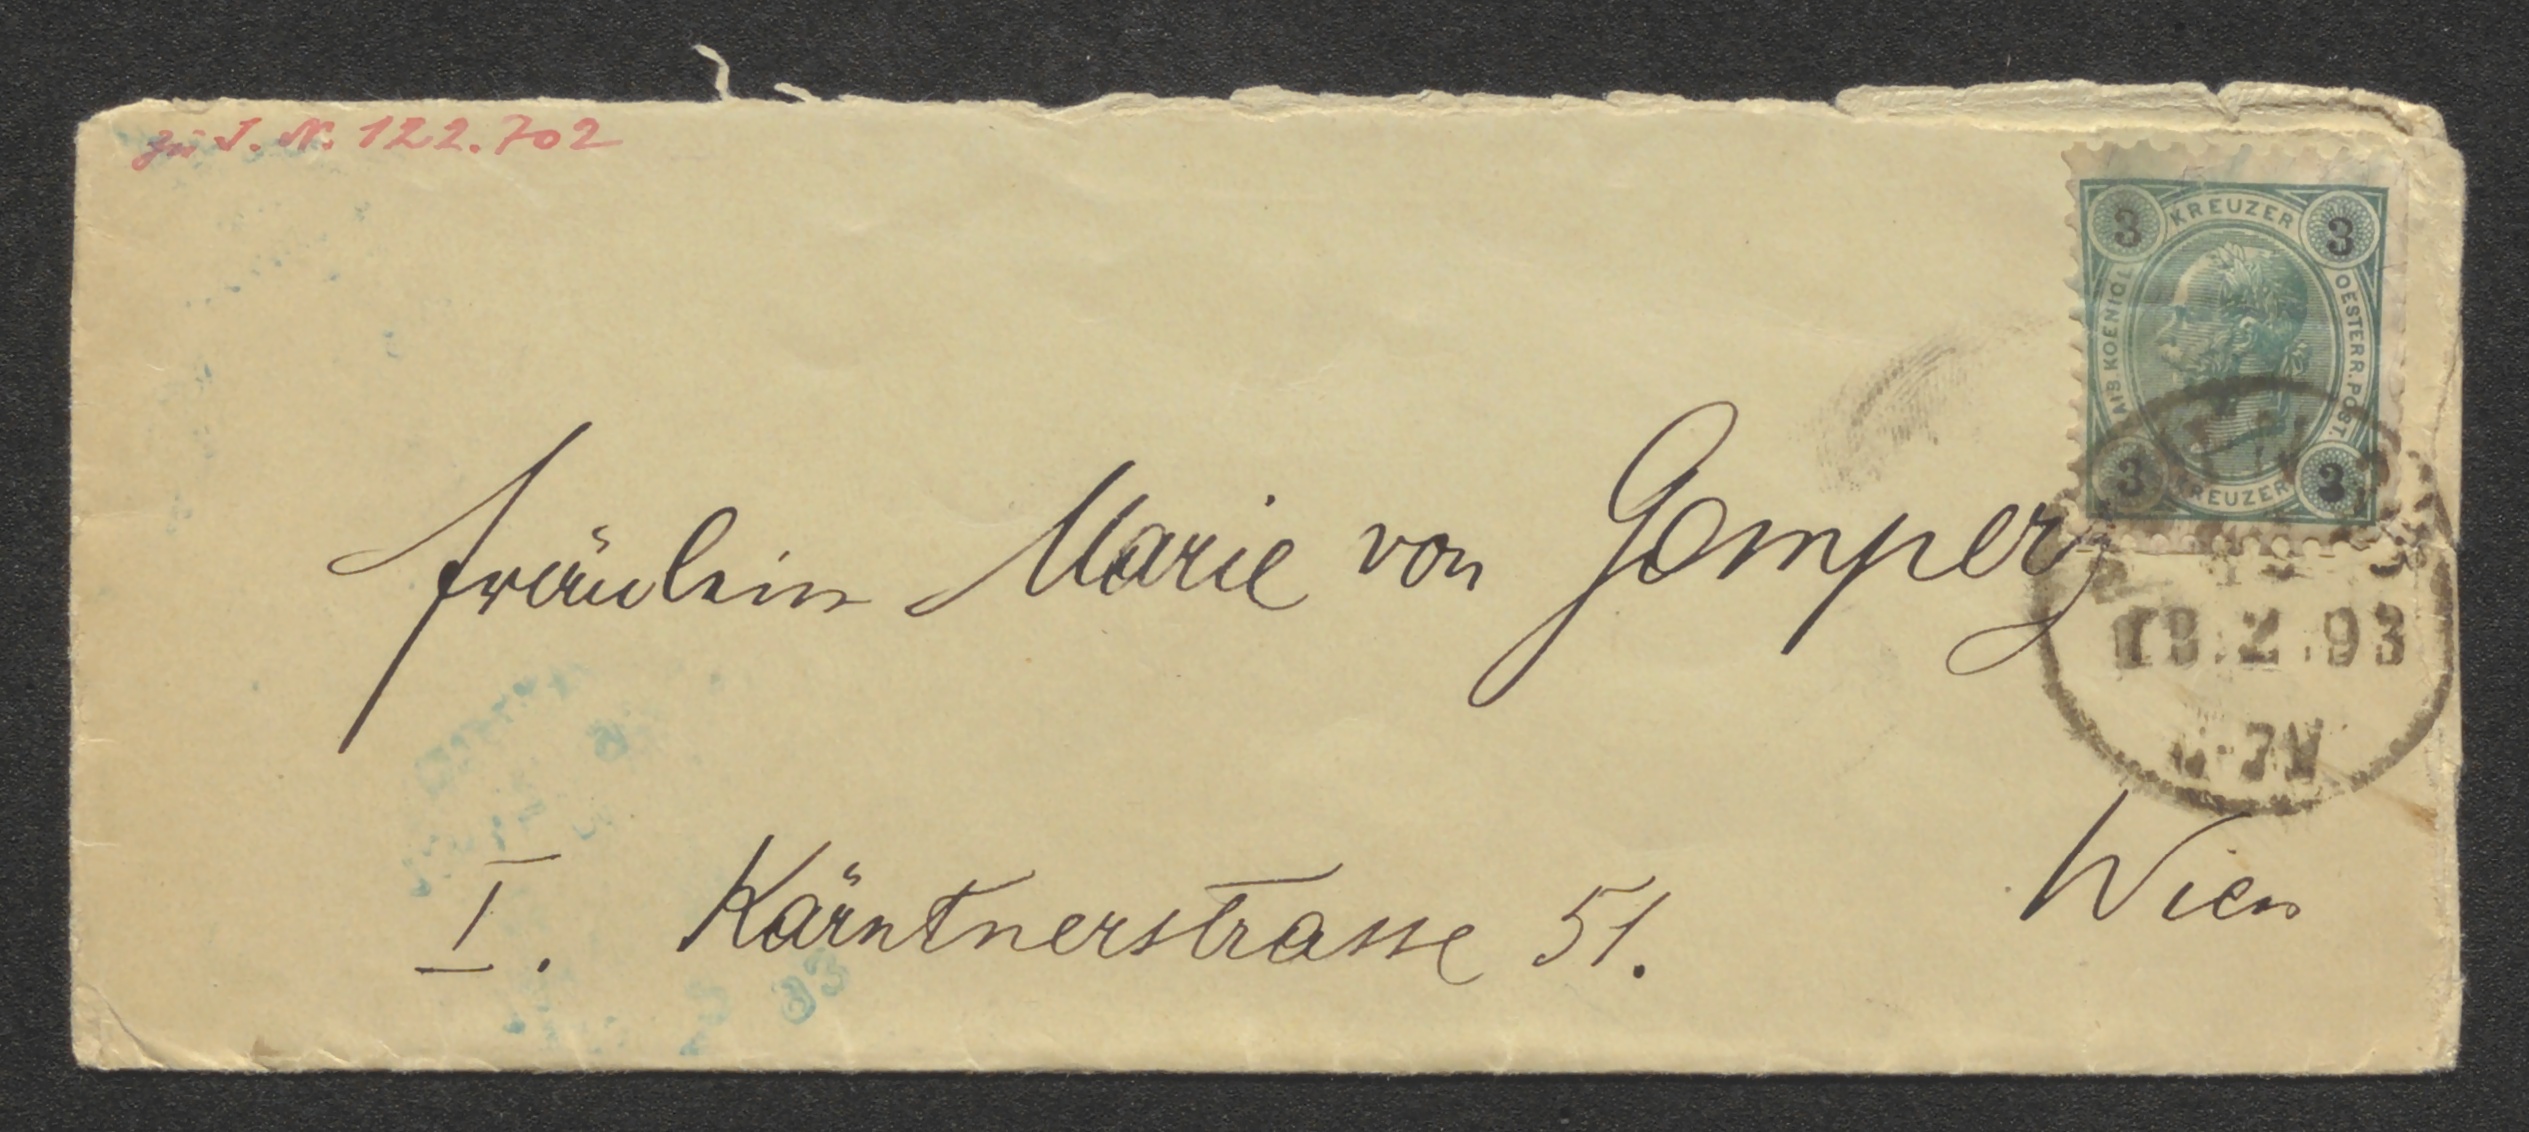 zu I. N. 122.702
3 KREUZER 3
KAIS. KOENIGL.
OESTERR. POST.
3 KREUZER 3
Fräulein Marie von Gomperz
93
I. Kärntnerstrasse 51.
Wien
93